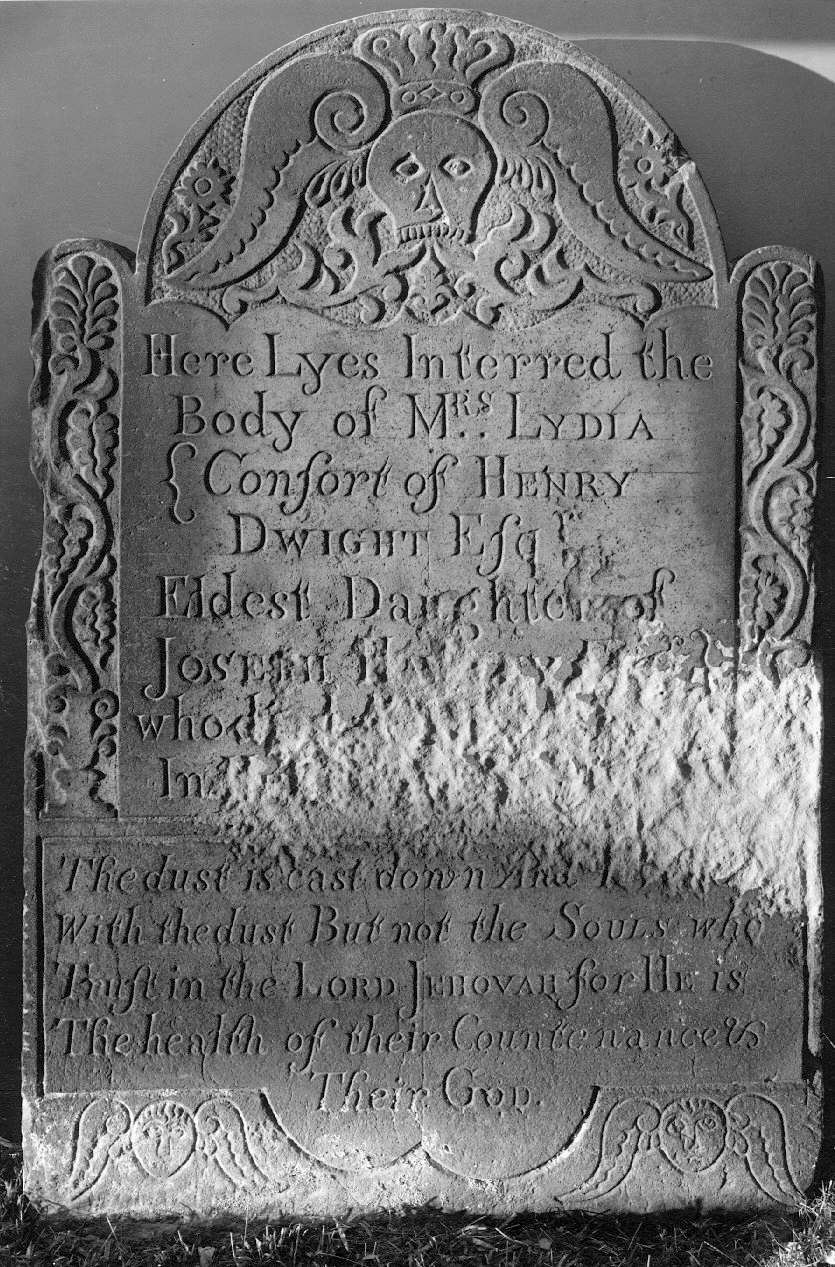 Here Lyes Interred the
Body of Mʳˢ. LYDIA
Conſort of HENRY
DWIGHT Eſqʳ
Eldest Daughter of
JOSEPH
who
In
The dust is cast down And
With the dust But not the SOULS who
Truſt in the LORD JEHOVAH for HE is
The health of their Countenance &
Their GOD.